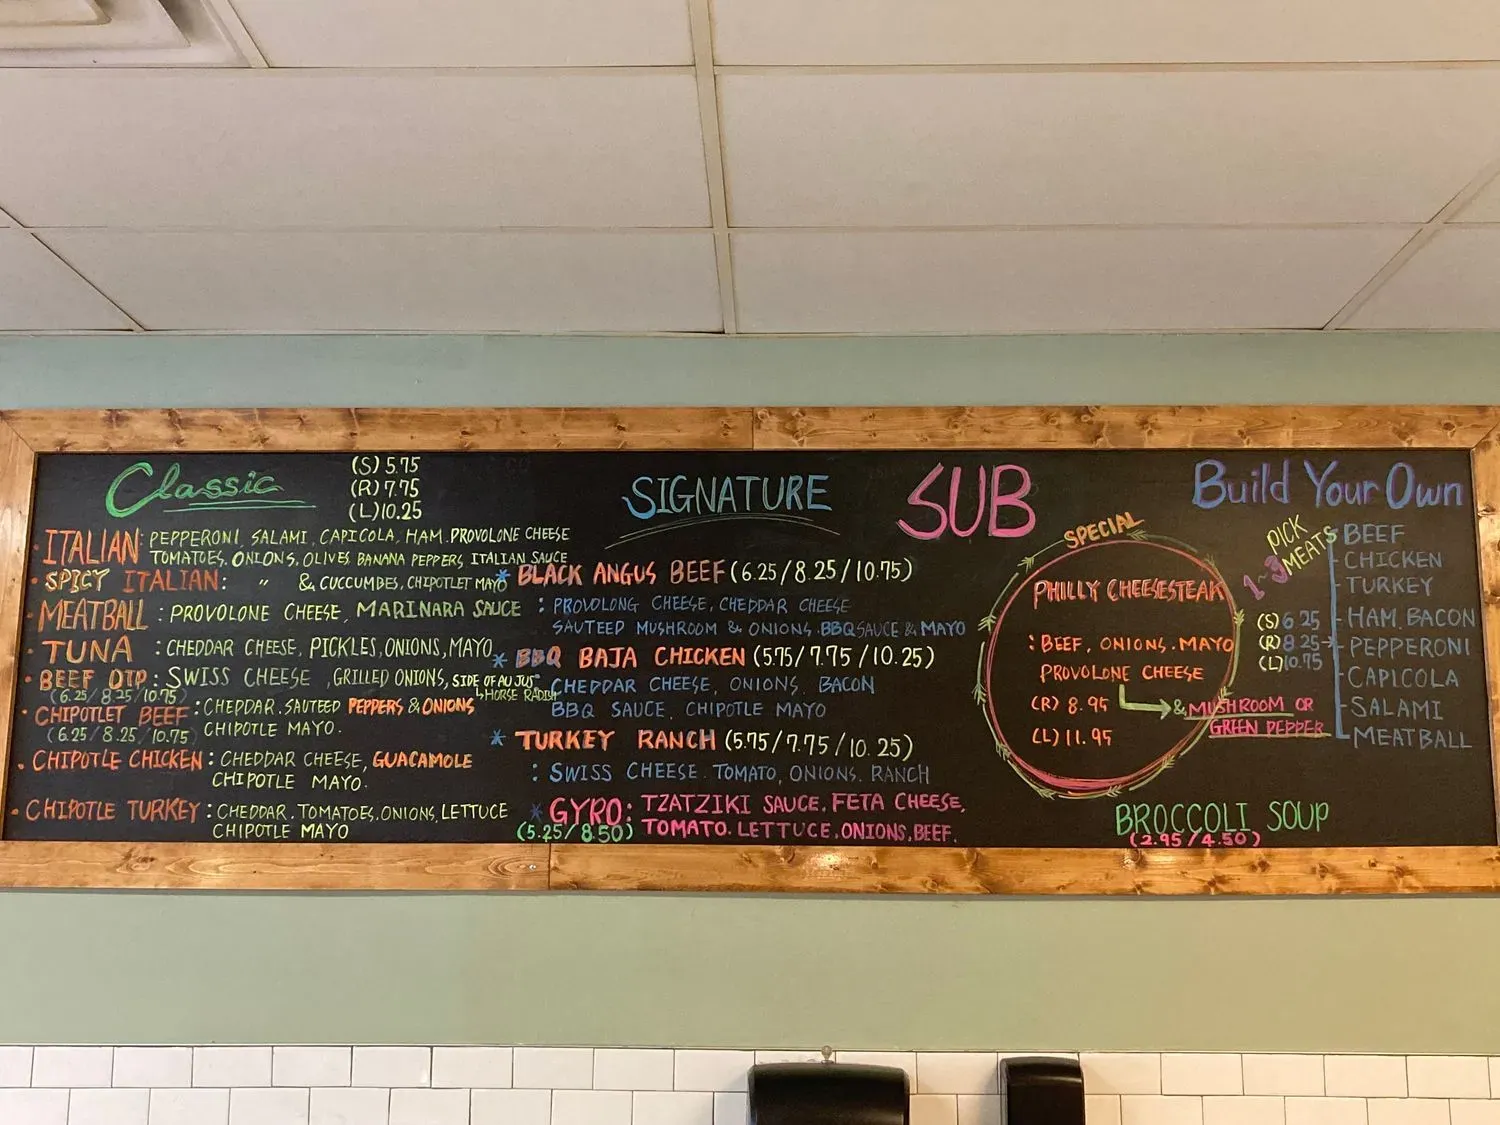 Classic
(S) 5.75
(R) 7.75
(L) 10.25
ITALIAN: PEPPERONI, SALAMI, CAPICOLA, HAM. PROVOLONE CHEESE
TOMATOES, ONIONS, OLIVES BANANA PEPPERS, ITALIAN SAUCE
SPICY ITALIAN: " & CUCCUMBES, CHIPOTLET MAYO
MEATBALL: PROVOLONE CHEESE, MARINARA SAUCE
TUNA: CHEDDAR CHEESE, PICKLES, ONIONS, MAYO
BEEF DIP: SWISS CHEESE, GRILLED ONIONS, SIDE OF AU JUS
(6.25/8.25/10.75)
HORSE RADISH
CHIPOTLET BEEF: CHEDDAR. SAUTEED PEPPERS & ONIONS
(6.25/8.25/10.75) CHIPOTLE MAYO.
CHIPOTLE CHICKEN: CHEDDAR CHEESE, GUACAMOLE
CHIPOTLE MAYO.
CHIPOTLE TURKEY: CHEDDAR. TOMATOES, ONIONS, LETTUCE
CHIPOTLE MAYO
SIGNATURE SUB
* BLACK ANGUS BEEF (6.25/8.25/10.75)
: PROVOLONG CHEESE, CHEDDAR CHEESE
SAUTEED MUSHROOM & ONIONS BBQ SAUCE & MAYO
* BBQ BAJA CHICKEN (5.75/7.75/10.25)
CHEDDAR CHEESE, ONIONS, BACON
BBQ SAUCE, CHIPOTLE MAYO
* TURKEY RANCH (5.75/7.75/10.25)
: SWISS CHEESE. TOMATO, ONIONS. RANCH
* GYRO: TZATZIKI SAUCE. FETA CHEESE,
(5.25/8.50) TOMATO. LETTUCE, ONIONS, BEEF.
SPECIAL
PHILLY CHEESESTEAK
: BEEF, ONIONS. MAYO
PROVOLONE CHEESE
(R) 8.95
& MUSHROOM OR
GREEN PEPPER
(L) 11.95
BROCCOLI SOUP
(2.95/4.50)
Build Your Own
PICK
1~3 MEATS
(S) 6.25
(R) 8.25
(L) 10.75
BEEF
CHICKEN
TURKEY
HAM, BACON
PEPPERONI
CAPICOLA
SALAMI
MEATBALL